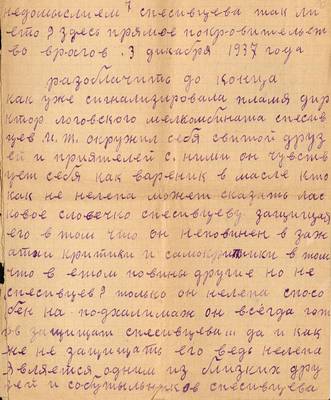 недомыслием? спесивцева так ли
ето? здесь прямое покровительст
во врагов. 3 декабря 1937 года
разоблачить до конца
как уже сигнализировала пламя дир
ктор логовского мелкомбината спесив
цев и. т. окружил себя свитой друз
ей и приятелей с. ними он чувств
ует себя как вареник в масле кто
как не нелепа может сказать лас
ковое словечко спесивцеву защищая
его в том что он неповинен в заж
атии критики и самокритики в том
что в етом повины другие но не
спесивцев? только он нелепа спосо
бен на подхалимаж он всегда гот
ов защищат спесивцева... да и как
же не защищать его ведь нелепа
является одним из близких дру
зей и собутыльников спесивцева